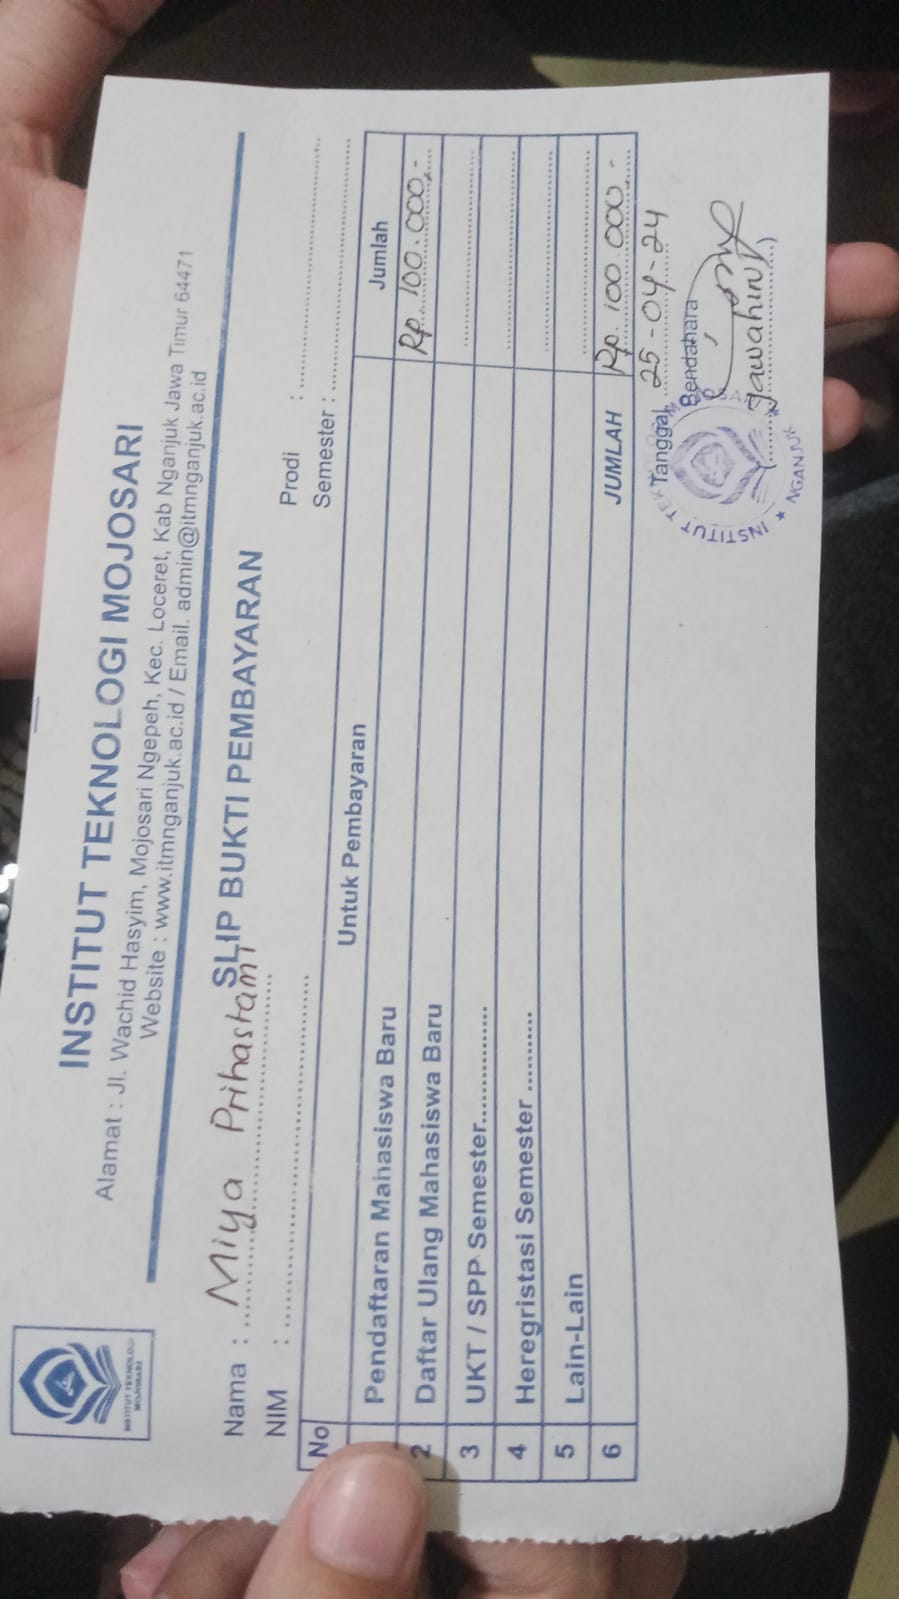 INSTITUT TEKNOLOGI MOJOSARI
INSTITUT TEKNOLOGI MOJOSARI
Alamat : Jl. Wachid Hasyim, Mojosari Ngepeh, Kec. Loceret, Kab Nganjuk Jawa Timur 64471
Website : www.itmnganjuk.ac.id / Email. admin@itmnganjuk.ac.id
SLIP BUKTI PEMBAYARAN
Nama : Miya Prihastami
NIM :
Prodi :
Semester :
No Untuk Pembayaran Jumlah
Pendaftaran Mahasiswa Baru Rp. 100.000,-
2 Daftar Ulang Mahasiswa Baru
3 UKT / SPP Semester............
4 Heregristasi Semester ...........
5 Lain-Lain
6 JUMLAH Rp. 100.000,-
Tanggal 25-04-24
Bendahara
INSTITUT TEK
NGANJUK